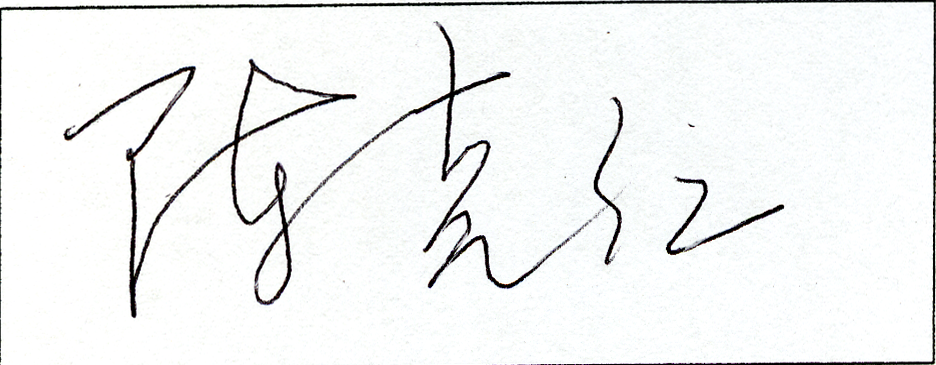 陈克红